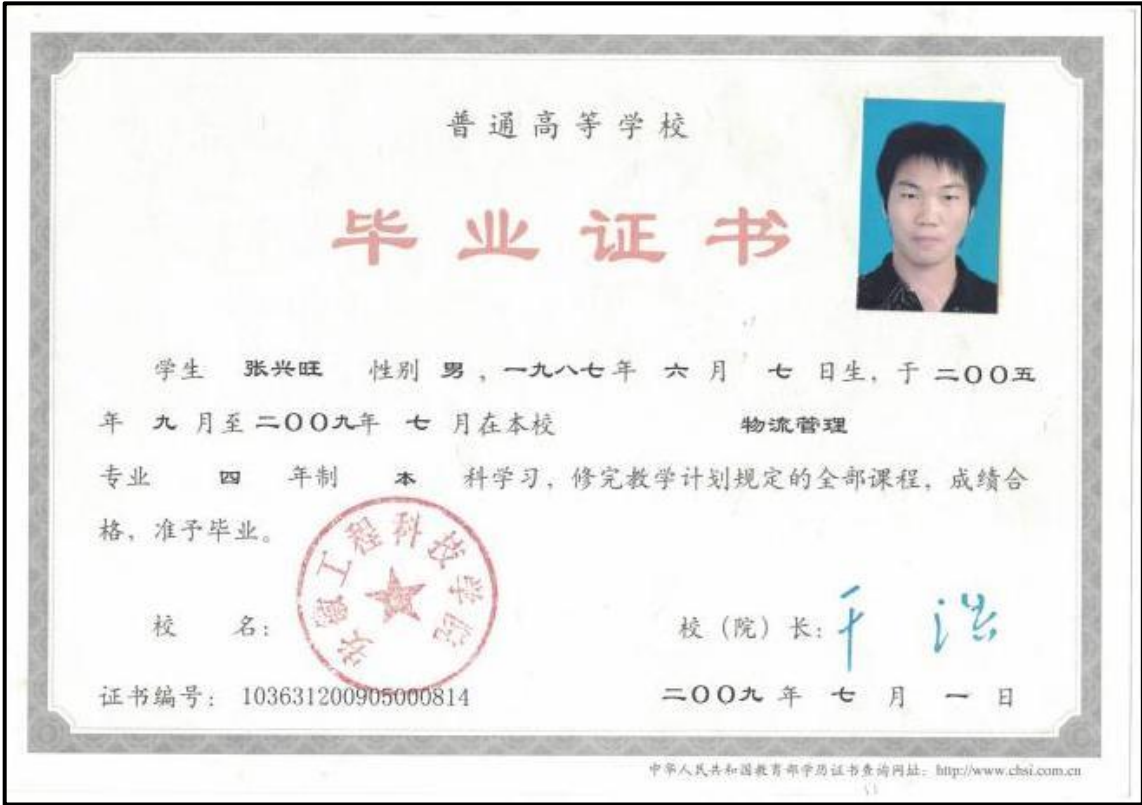 普通高等学校
毕业证书
学生 张兴旺 性别 男，一九八七年 六 月 七 日生，于 二〇〇五
年 九 月至 二〇〇九年 七 月在本校 物流管理
专业 四 年制 本 科学习，修完教学计划规定的全部课程，成绩合
格，准予毕业。
安徽工程科技学院
校 名： 校（院）长：干 洪
证书编号： 103631200905000814 二〇〇九 年 七 月 一 日
中华人民共和国教育部学历证书查询网址：http://www.chsi.com.cn